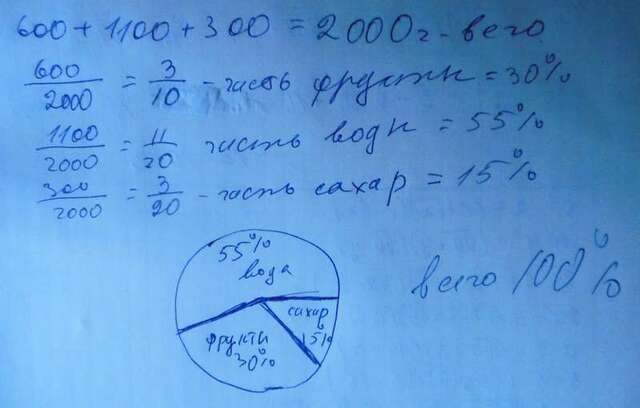 600 + 1100 + 300 = 2000 г - всего
600/2000 = 3/10 - часть фрукты = 30%
1100/2000 = 11/20 часть воды = 55%
300/2000 = 3/20 - часть сахар = 15%
55%
вода
сахар
15%
фрукты
30%
всего 100%